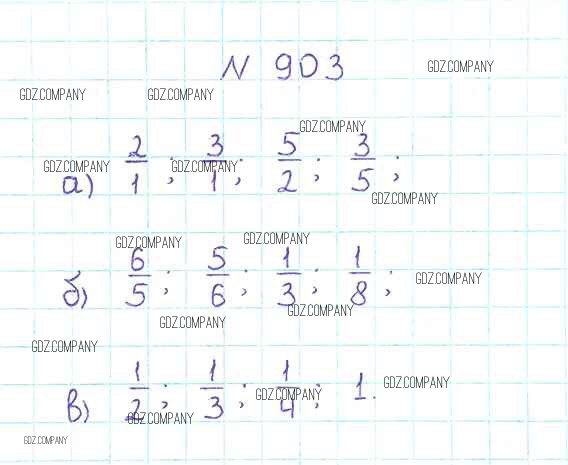 N 903
GDZ.COMPANY
GDZ.COMPANY GDZ.COMPANY
GDZ.COMPANY
GDZ.COMPANY GDZ.COMPANY
а) 2/1; 3/1; 5/2; 3/5;
GDZ.COMPANY
GDZ.COMPANY GDZ.COMPANY
б) 6/5; 5/6; 1/3; 1/8;
GDZ.COMPANY
GDZ.COMPANY
GDZ.COMPANY
GDZ.COMPANY
в) 1/2; 1/3; 1/4; 1.
GDZ.COMPANY
GDZ.COMPANY
GDZ.COMPANY
GDZ.COMPANY